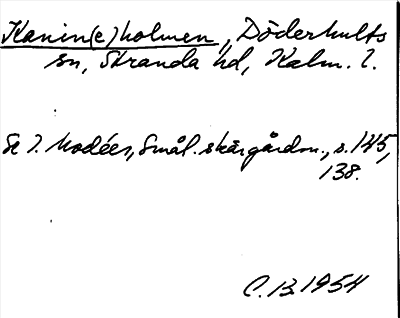 Kanin(e)holmen, Döderhults
sn, Stranda hd, Kalm. l.
Se I. Modéer, Smål. skärgårdsn., s. 145,
138.
C. B. 1954